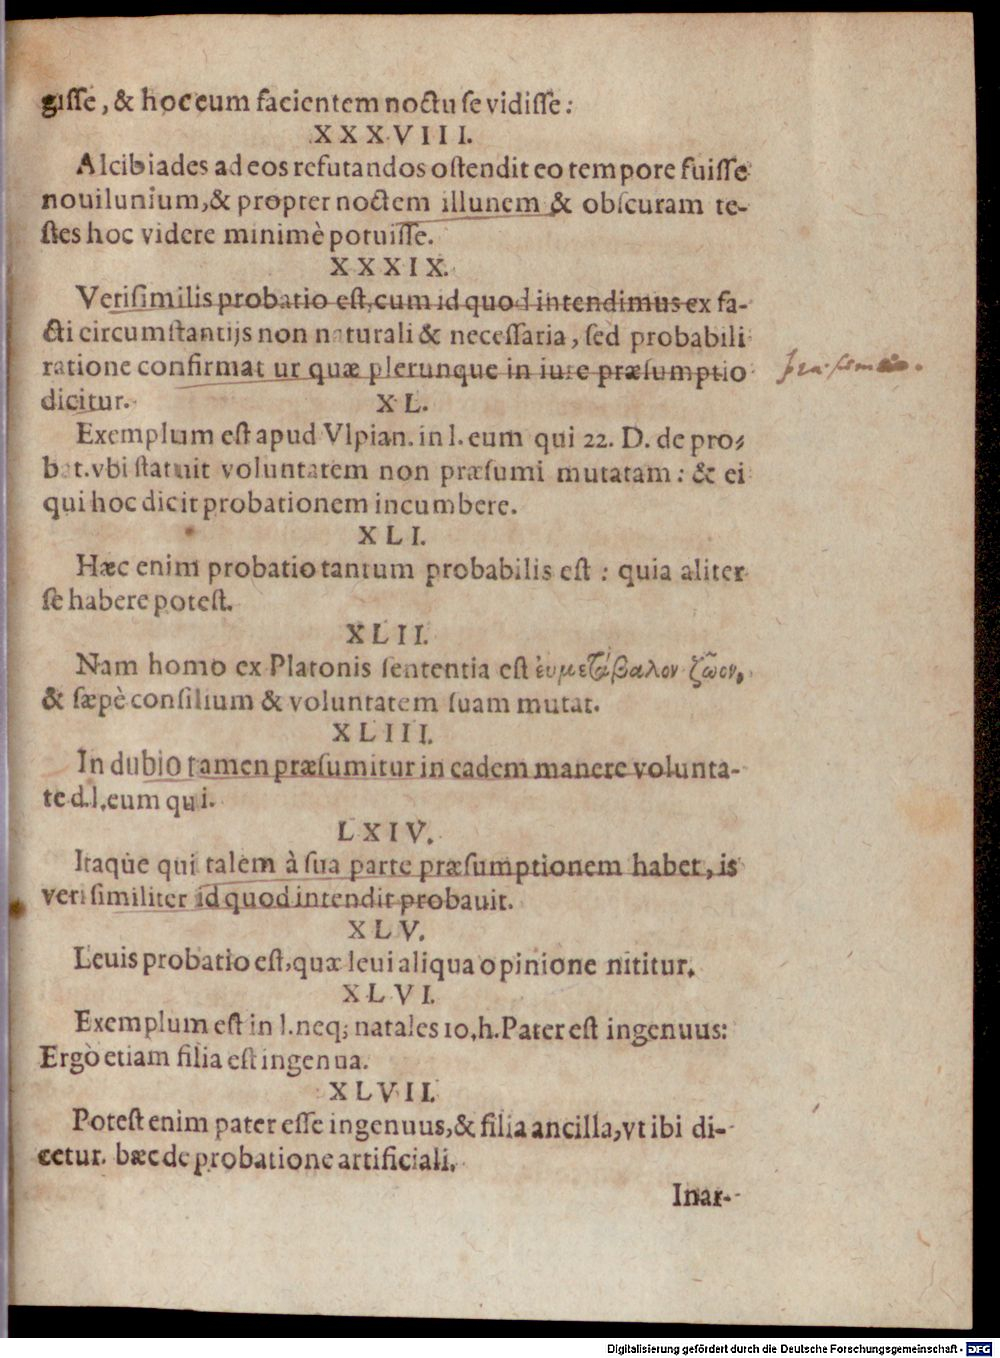 gisse, & hoc eum facientem noctu se vidisse:
XXXVIII.
Alcibiades ad eos refutandos ostendit eo tempore fuisse
nouilunium, & propter noctem illunem & obscuram te-
stes hoc videre minimè potuisse.
XXXIX.
Verisimilis probatio est, cum id quod intendimus ex fa-
cti circumstantijs non naturali & necessaria, sed probabili
ratione confirmatur quæ plerunque in iure præsumptio
præsumtio.
dicitur.
XL.
Exemplum est apud Vlpian. in l. eum qui 22. D. de pro-
bat. vbi statuit voluntatem non præsumi mutatam: & ei
qui hoc dicit probationem incumbere.
XLI.
Hæc enim probatio tantum probabilis est: quia aliter
se habere potest.
XLII.
Nam homo ex Platonis sententia est ἐυμετάβαλον ζῶον,
& sæpè consilium & voluntatem suam mutat.
XLIII.
In dubio tamen præsumitur in eadem manere volunta-
te d. l. eum qui.
LXIV.
Itaque qui talem à sua parte præsumptionem habet, is
verisimiliter id quod intendit probauit.
XLV.
Leuis probatio est, quæ leui aliqua opinione nititur.
XLVI.
Exemplum est in l. neq; natales 10. h. Pater est ingenuus:
Ergò etiam filia est ingenua.
XLVII.
Potest enim pater esse ingenuus, & filia ancilla, vt ibi di-
cetur. hæc de probatione artificiali.
Inar-
Digitalisierung gefördert durch die Deutsche Forschungsgemeinschaft - DFG